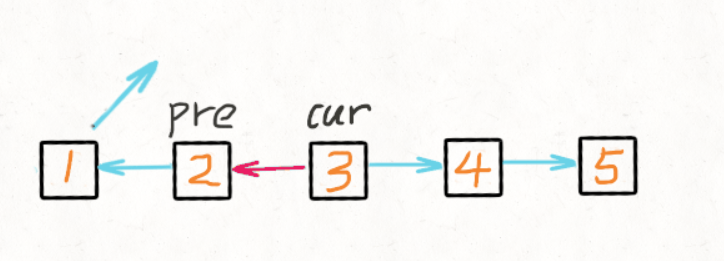 pre cur
1 2 3 4 5